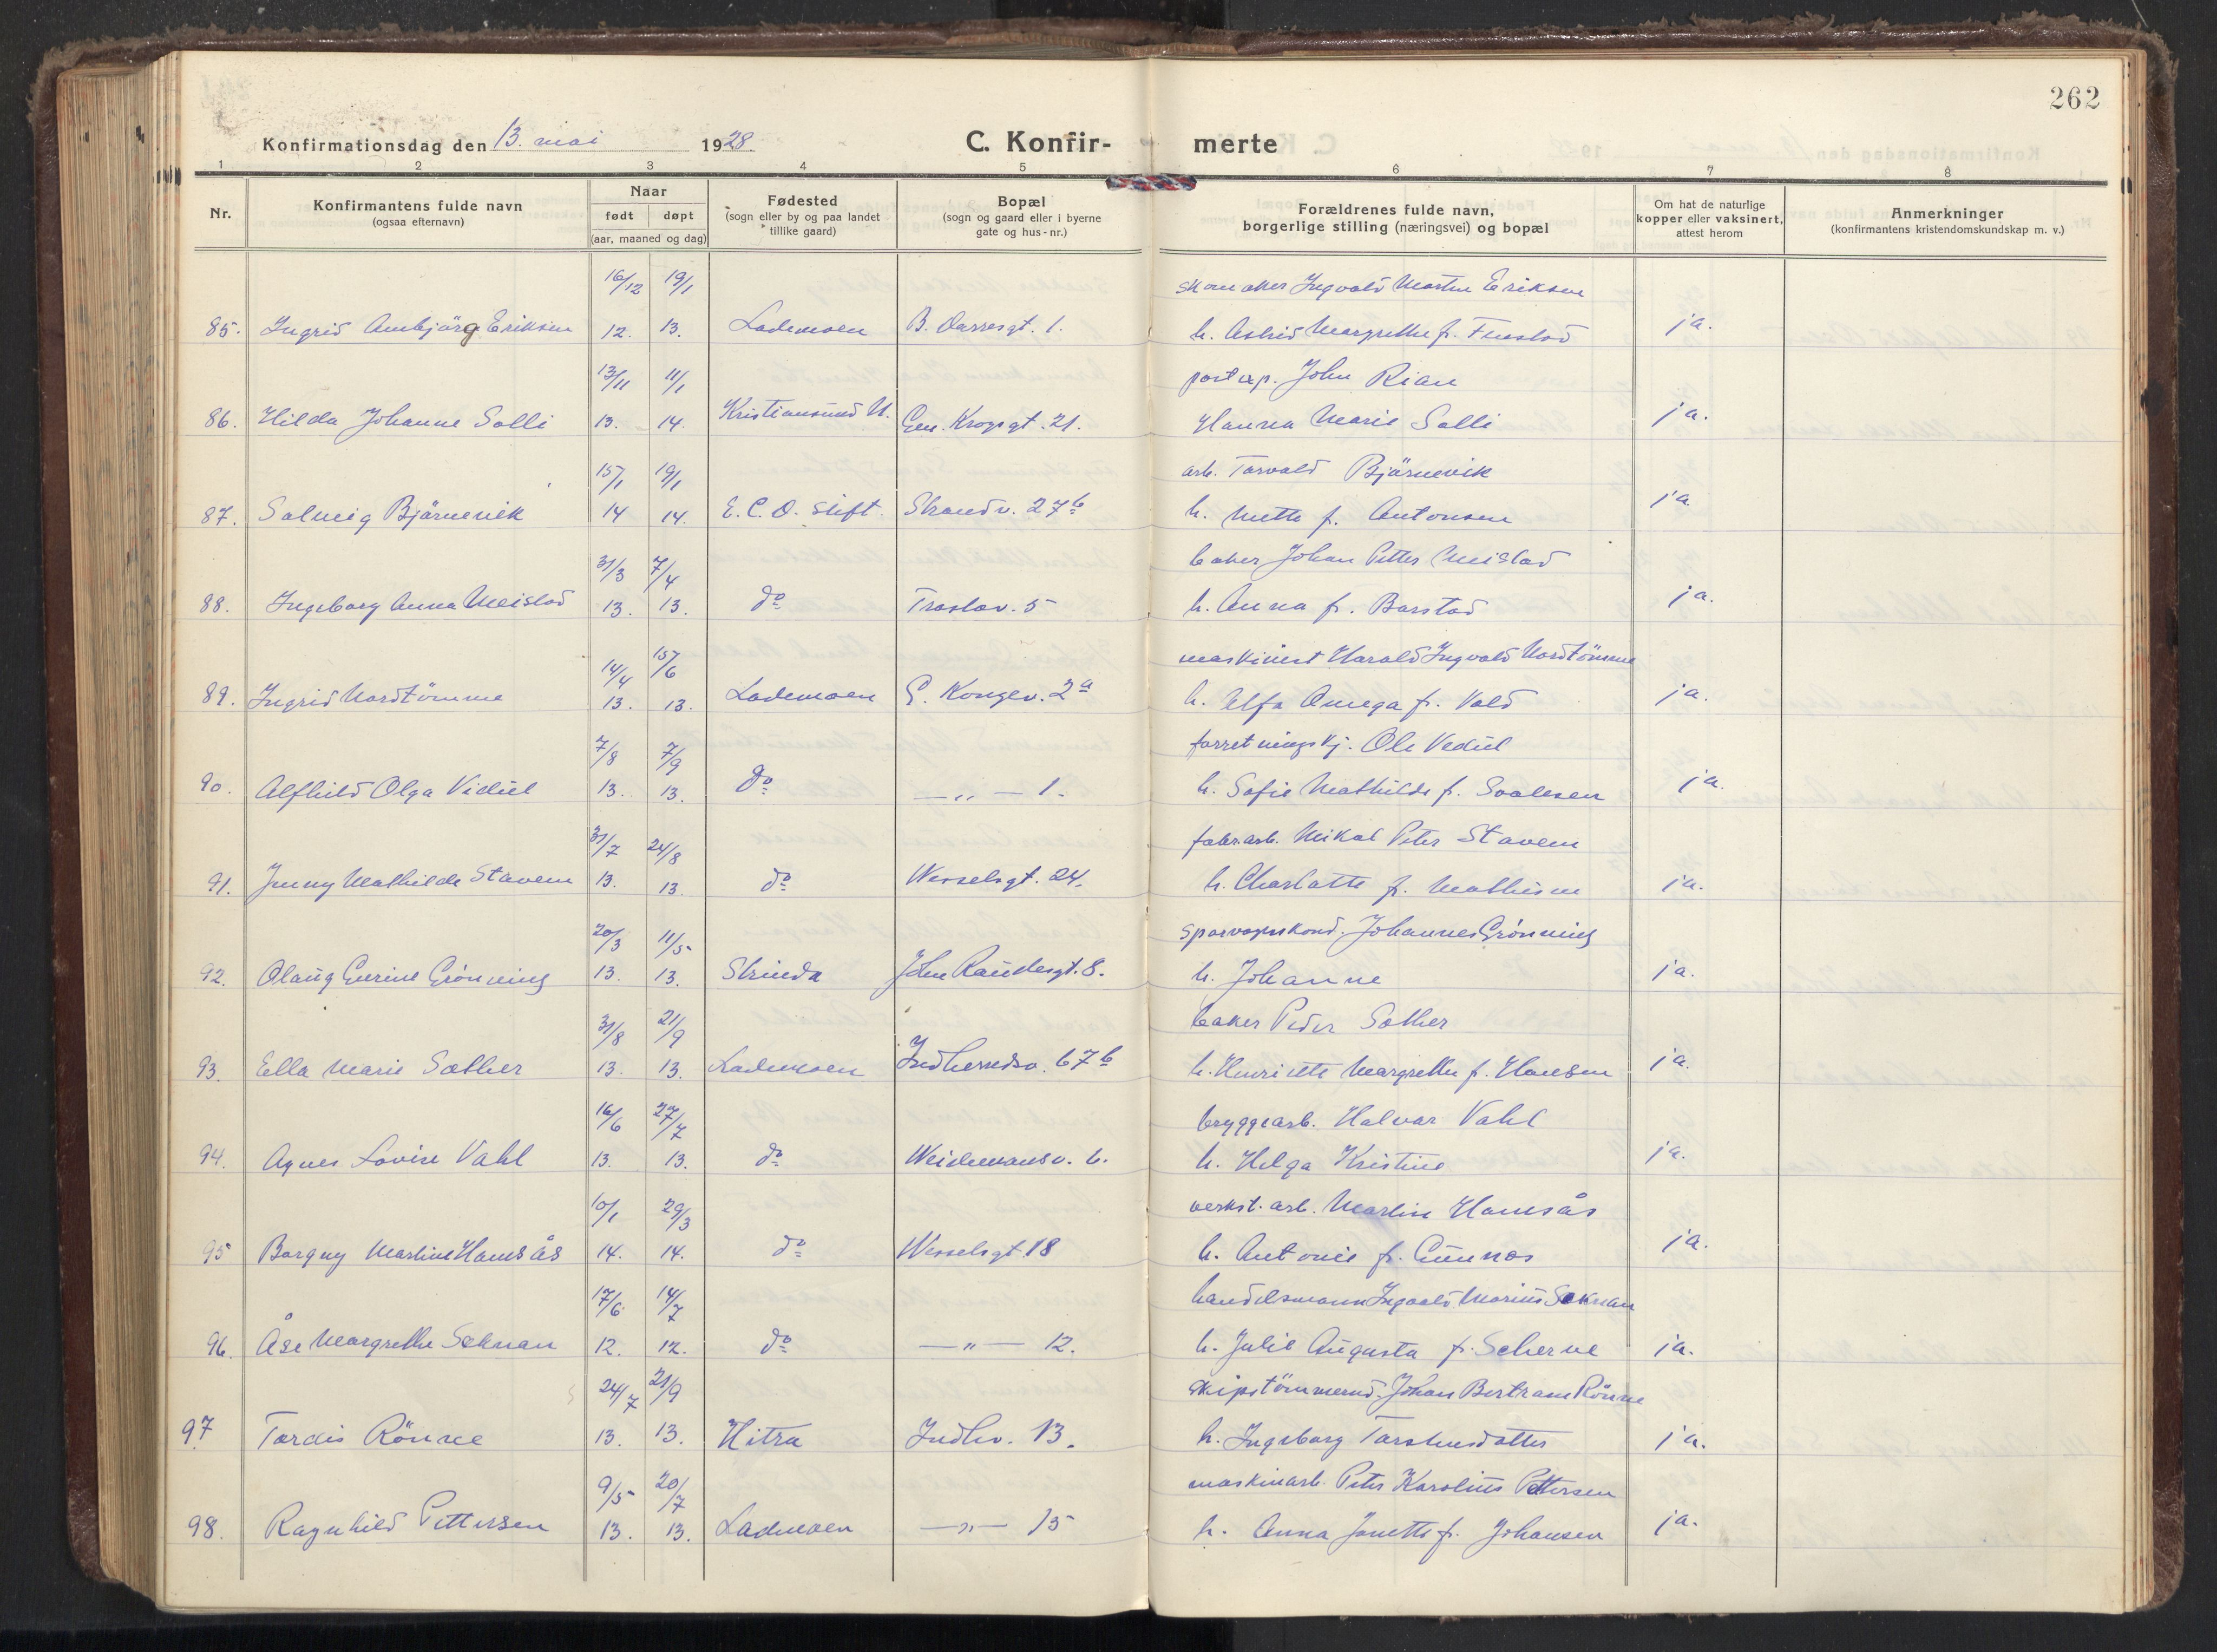 262
Konfirmationsdag den 13. mai 1928 C. Konfir- merte
1 2 3 4 5 6 7 8
Nr.
Konfirmantens fulde navn
(ogsaa efternavn)
Naar
født døpt
(aar, maaned og dag)
Fødested
(sogn eller by og paa landet
tillike gaard)
Bopæl
(sogn og gaard eller i byerne
gate og hus-nr.)
Forældrenes fulde navn,
borgerlige stilling (næringsvei) og bopæl
Om hat de naturlige
kopper eller vaksinert,
attest herom
Anmerkninger
(konfirmantens kristendomskundskap m. v.)
16/12 19/1 skomaker Ingvald Martin Eriksen
85. Ingrid Ambjörg Eriksen 12. 13. Lademoen B. Darresgt. 1. h. Astrid Margrethe f. ja.
13/11 11/1 postexp. John Rian
86. Hilda Johanne Solli 13. 14. Kristiansund N. Gen. Krogsgt. 21. Hanna Marie Solli ja.
15/1 19/1 arb. Torvald Björnevik
87. Solveig Björnevik 14 14. E. C. D. stift. Strandv. 27b h. Mette f. Antonsen ja
31/3 7/4 baker Johan Petter Meistad
88. Ingeborg Anna Meistad 13. 13. do Traslav. 5 h. Anna f. Barstad ja.
14/4 15/6 maskinist Harald Ingvald Nordtömme
89. Ingrid Nordtömme 13. 13. Lademoen G. Kongev. 2a h. Alfa Omega f. Vold ja.
7/8 7/9 forretningsbj. Ole Vediel
90. Alfhild Olga Vediel 13. 13. do —„— 1. h. Sofie Mathilde f. ja.
31/7 24/8 fabr.arb. Mikal Peter Stavem
91. Jenny Mathilde Stavem 13. 13. do Wesselsgt. 24. h. Charlotte f. Mathisen ja.
20/3 11/5 sporvognskond. Johannes Grönning
92. Olaug Gurine Grönning 13. 13. Strinda John Randesgt. 8. h. Johanne ja.
31/8 21/9 baker Peder Sæther
93. Ella Marie Sæther 13. 13. Lademoen Indherredsv. 67b h. Henriette Margrethe f. Hansen ja.
16/6 27/7 bryggearb. Halvar Vahl
94. Agnes Lovise Vahl 13. 13. do Weidemansv. 6. h. Helga Kristine ja.
10/1 29/3 verkst. arb. Martin Hamsås
95 Borgny Martine Hamsås 14. 14. do Wesselsgt. 18 h. Antonie f. ja.
17/6 14/7 handelsmann Ingvald Marius Seknan
96. Åse Margrethe Seknan 12. 12. do —„— 12. h. Julie Augusta f. Scherve ja.
24/7 21/9 skipstömmermd. Johan Bertram Rönne
97 Tordis Rönne 13. 13. Hitra Indhv. 13. h. Ingeborg Torstensdatter ja.
9/5 20/7 maskinarb. Peter Karolius Pettersen
98. Ragnhild Pettersen 13. 13. Lademoen —„— 15 h. Anna Janette f. Johansen ja.